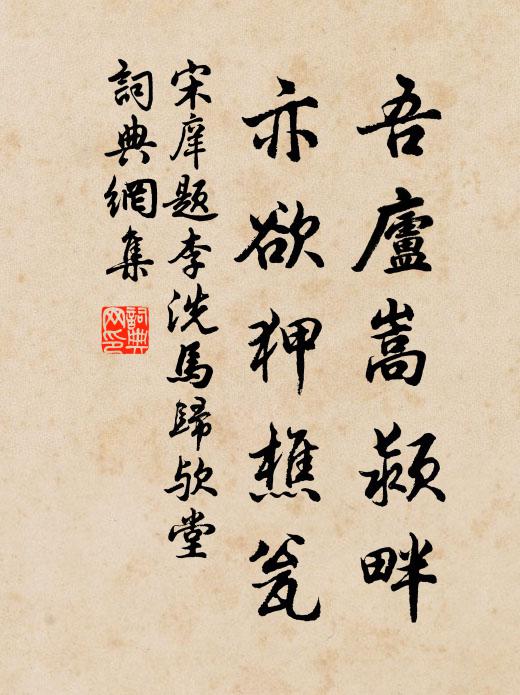 吾廬嵩潁畔
亦欲狎樵翁
宋庠題李洗馬歸歟堂
詞典網集
詞典网印